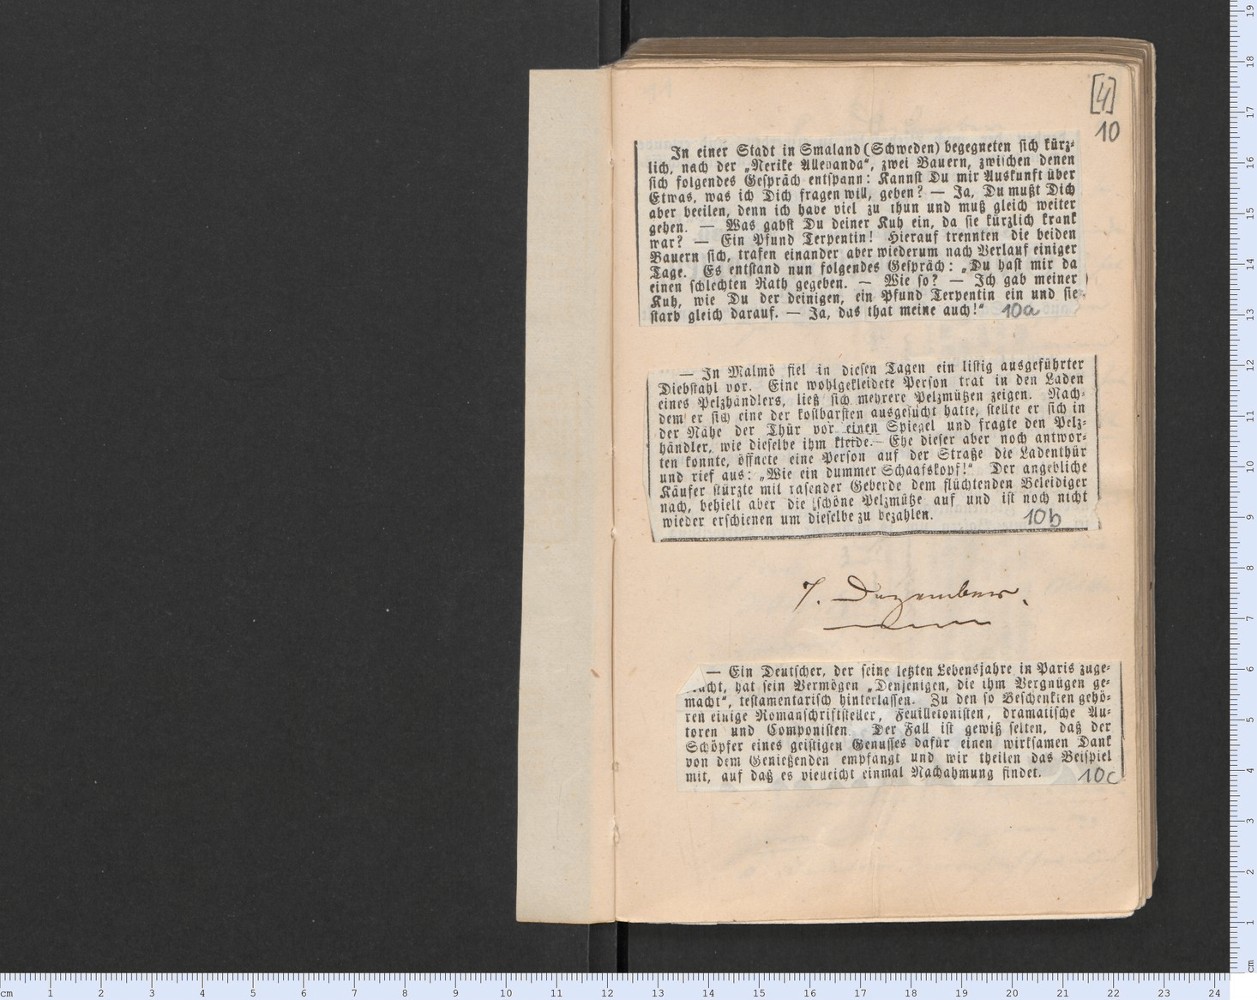 [4]
10
In einer Stadt in Smaland (Schweden) begegneten sich kürz-
lich, nach der „Nerike Allevanda“, zwei Bauern, zwischen denen
sich folgendes Gespräch entspann: Kannst Du mir Auskunft über
Etwas, was ich Dich fragen will, geben? — Ja, Du mußt Dich
aber beeilen, denn ich habe viel zu thun und muß gleich weiter
gehen. — Was gabst Du deiner Kuh ein, da sie kürzlich krank
war? — Ein Pfund Terpentin! Hierauf trennten die beiden
Bauern sich, trafen einander aber wiederum nach Verlauf einiger
Tage. Es entstand nun folgendes Gespräch: „Du hast mir da
einen schlechten Rath gegeben. — Wie so? — Ich gab meiner
Kuh, wie Du der deinigen, ein Pfund Terpentin ein und sie
starb gleich darauf. — Ja, das that meine auch!“ 10a
— In Malmö fiel in diesen Tagen ein listig ausgeführter
Diebstahl vor. Eine wohlgekleidete Person trat in den Laden
eines Pelzhändlers, ließ sich mehrere Pelzmützen zeigen. Nach-
dem er sich eine der kostbarsten ausgesucht hatte, stellte er sich in
der Nähe der Thür vor einen Spiegel und fragte den Pelz-
händler, wie dieselbe ihm kleide. — Ehe dieser aber noch antwor-
ten konnte, öffnete eine Person auf der Straße die Ladenthür
und rief aus: „Wie ein dummer Schaafskopf!“ Der angebliche
Käufer stürzte mit rasender Geberde dem flüchtenden Beleidiger
nach, behielt aber die schöne Pelzmütze auf und ist noch nicht
wieder erschienen um dieselbe zu bezahlen. 10b
7. Dezember.
— Ein Deutscher, der seine letzten Lebensjahre in Paris zuge-
bracht, hat sein Vermögen „Denjenigen, die ihm Vergnügen ge-
macht“, testamentarisch hinterlassen. Zu den so Beschenkten gehö-
ren einige Romanschriftsteller, Feuilletonisten, dramatische Au-
toren und Componisten. Der Fall ist gewiß selten, daß der
Schöpfer eines geistigen Genusses dafür einen wirksamen Dank
von dem Genießenden empfangt und wir theilen das Beispiel
mit, auf daß es vielleicht einmal Nachahmung findet. 10c